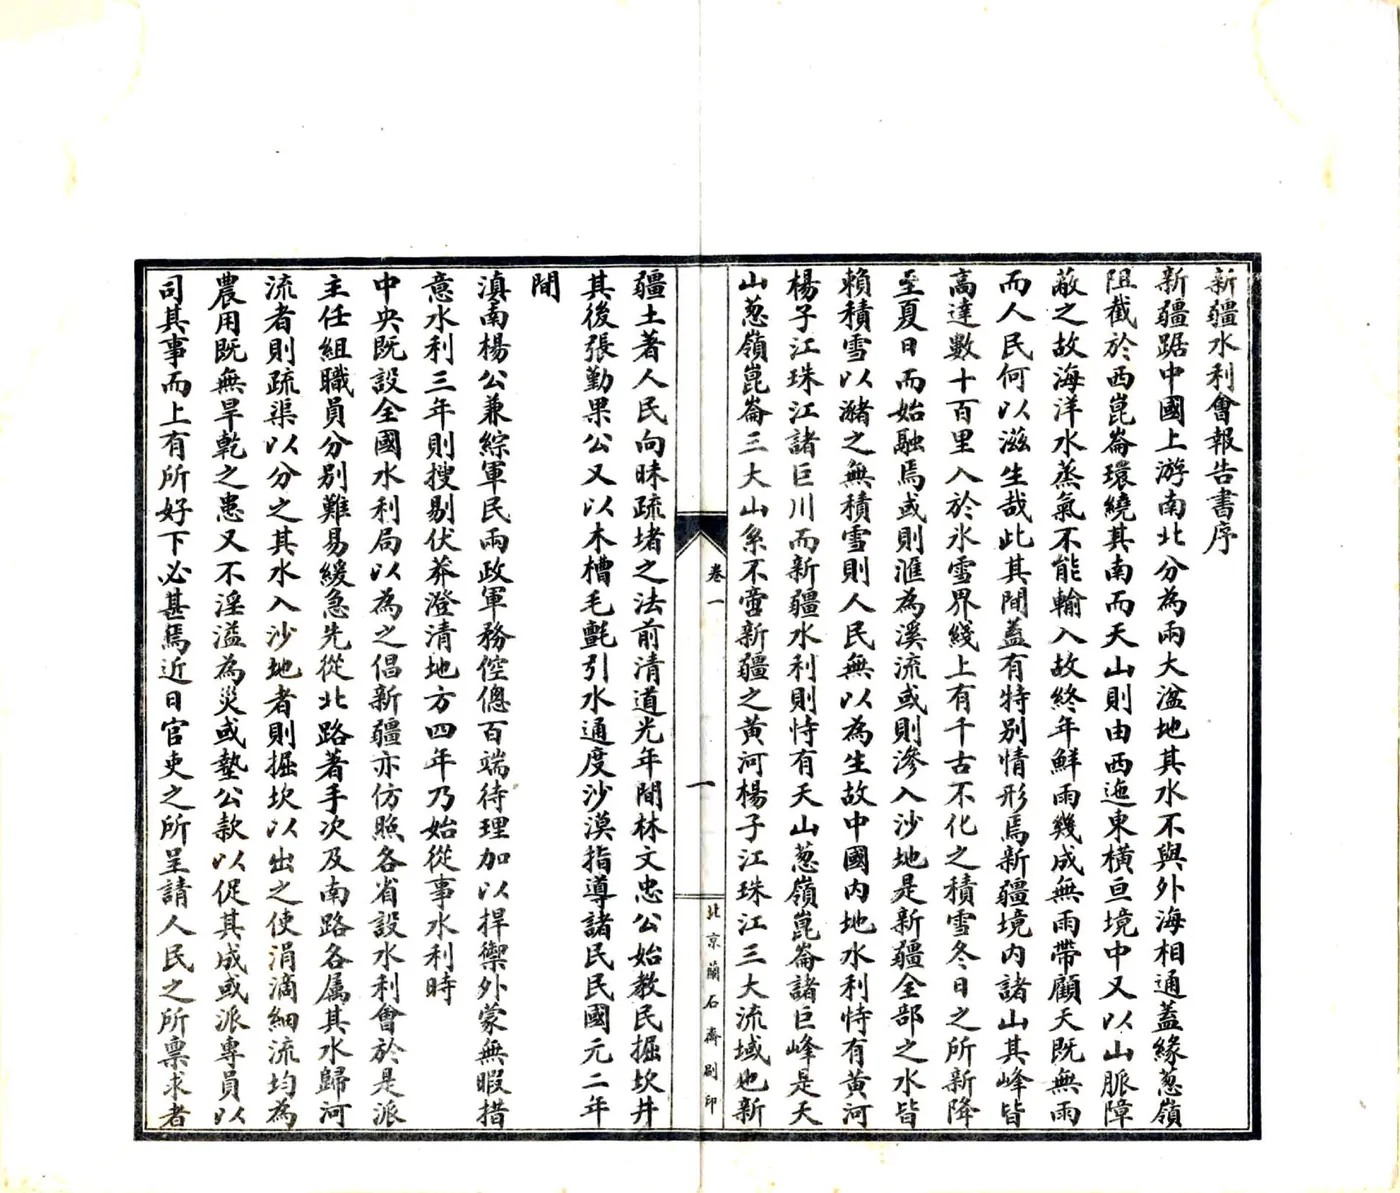 新疆水利會報告書序
新疆踞中國上游南北分為兩大盆地其水不與外海相通蓋緣葱嶺
阻截於西崑崙環繞其南而天山則由西迤東橫亘境中又以山脈障
蔽之故海洋水蒸氣不能輸入故終年鮮雨幾成無雨帶顧天既無雨
而人民何以滋生哉此其間蓋有特别情形焉新疆境內諸山其峰皆
高達數十百里入於氷雪界綫上有千古不化之積雪冬日之所新降
至夏日而始融焉或則滙為溪流或則滲入沙地是新疆全部之水皆
賴積雪以瀦之無積雪則人民無以為生故中國內地水利恃有黃河
楊子江珠江諸巨川而新疆水利則恃有天山葱嶺崑崙諸巨峰是天
山葱嶺崑崙三大山系不啻新疆之黃河楊子江珠江三大流域也新
卷一
一
北京蘭石齋刷印
疆土著人民向昧疏堵之法前清道光年間林文忠公始教民掘坎井
其後張勤果公又以木槽毛氈引水通度沙漠指導諸民民國元二年
間
滇南楊公兼綜軍民兩政軍務倥傯百端待理加以捍禦外蒙無暇措
意水利三年則搜剔伏莽澄清地方四年乃始從事水利時
中央既設全國水利局以為之倡新疆亦仿照各省設水利會於是派
主任組職員分别難易緩急先從北路著手次及南路各属其水歸河
流者則疏渠以分之其水入沙地者則掘坎以出之使涓滴細流均為
農用既無旱乾之患又不淫溢為災或墊公款以促其成或派專員以
司其事而上有所好下必甚焉近日官吏之所呈請人民之所禀求者